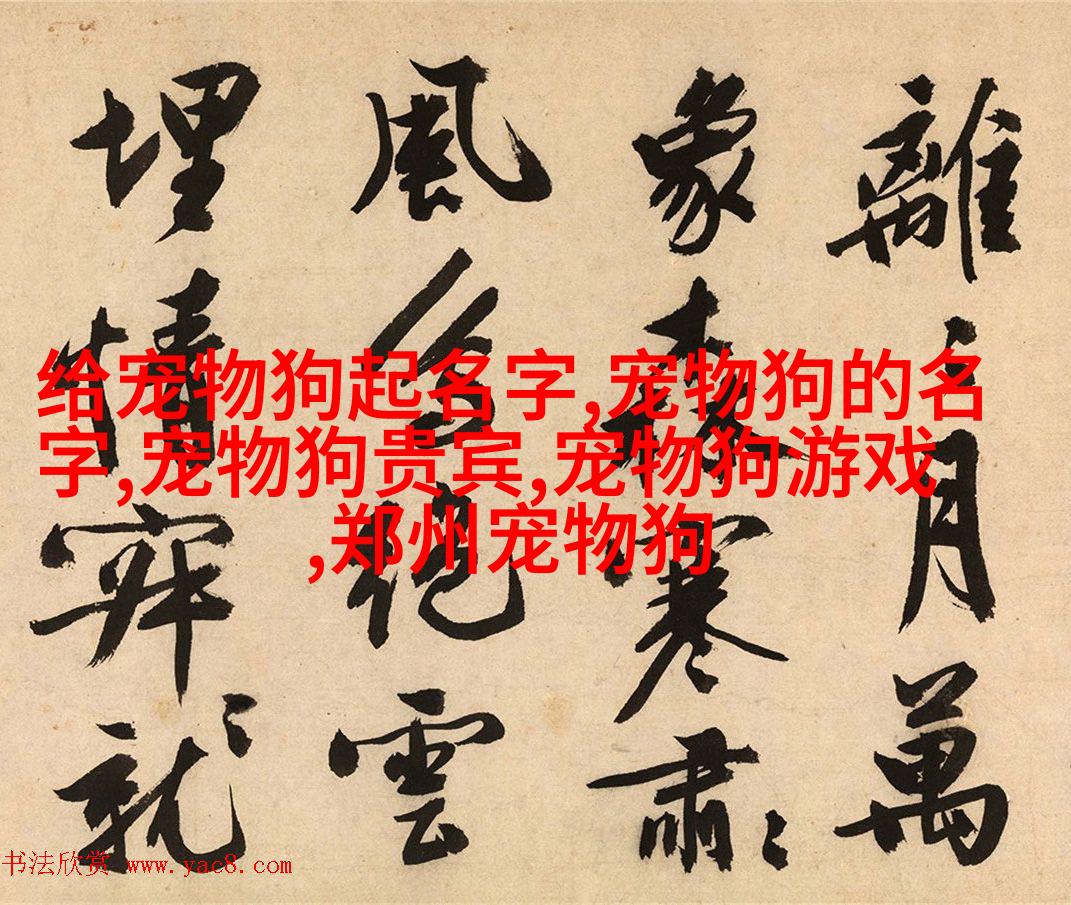 給宠物狗起名字,宠物狗的名
字,宠物狗贵宾,宠物狗游戏
,郑州宠物狗
離〻月萬
象森寒肅〻
風台絕雲
埋情
书法欣赏 www.yac8.com